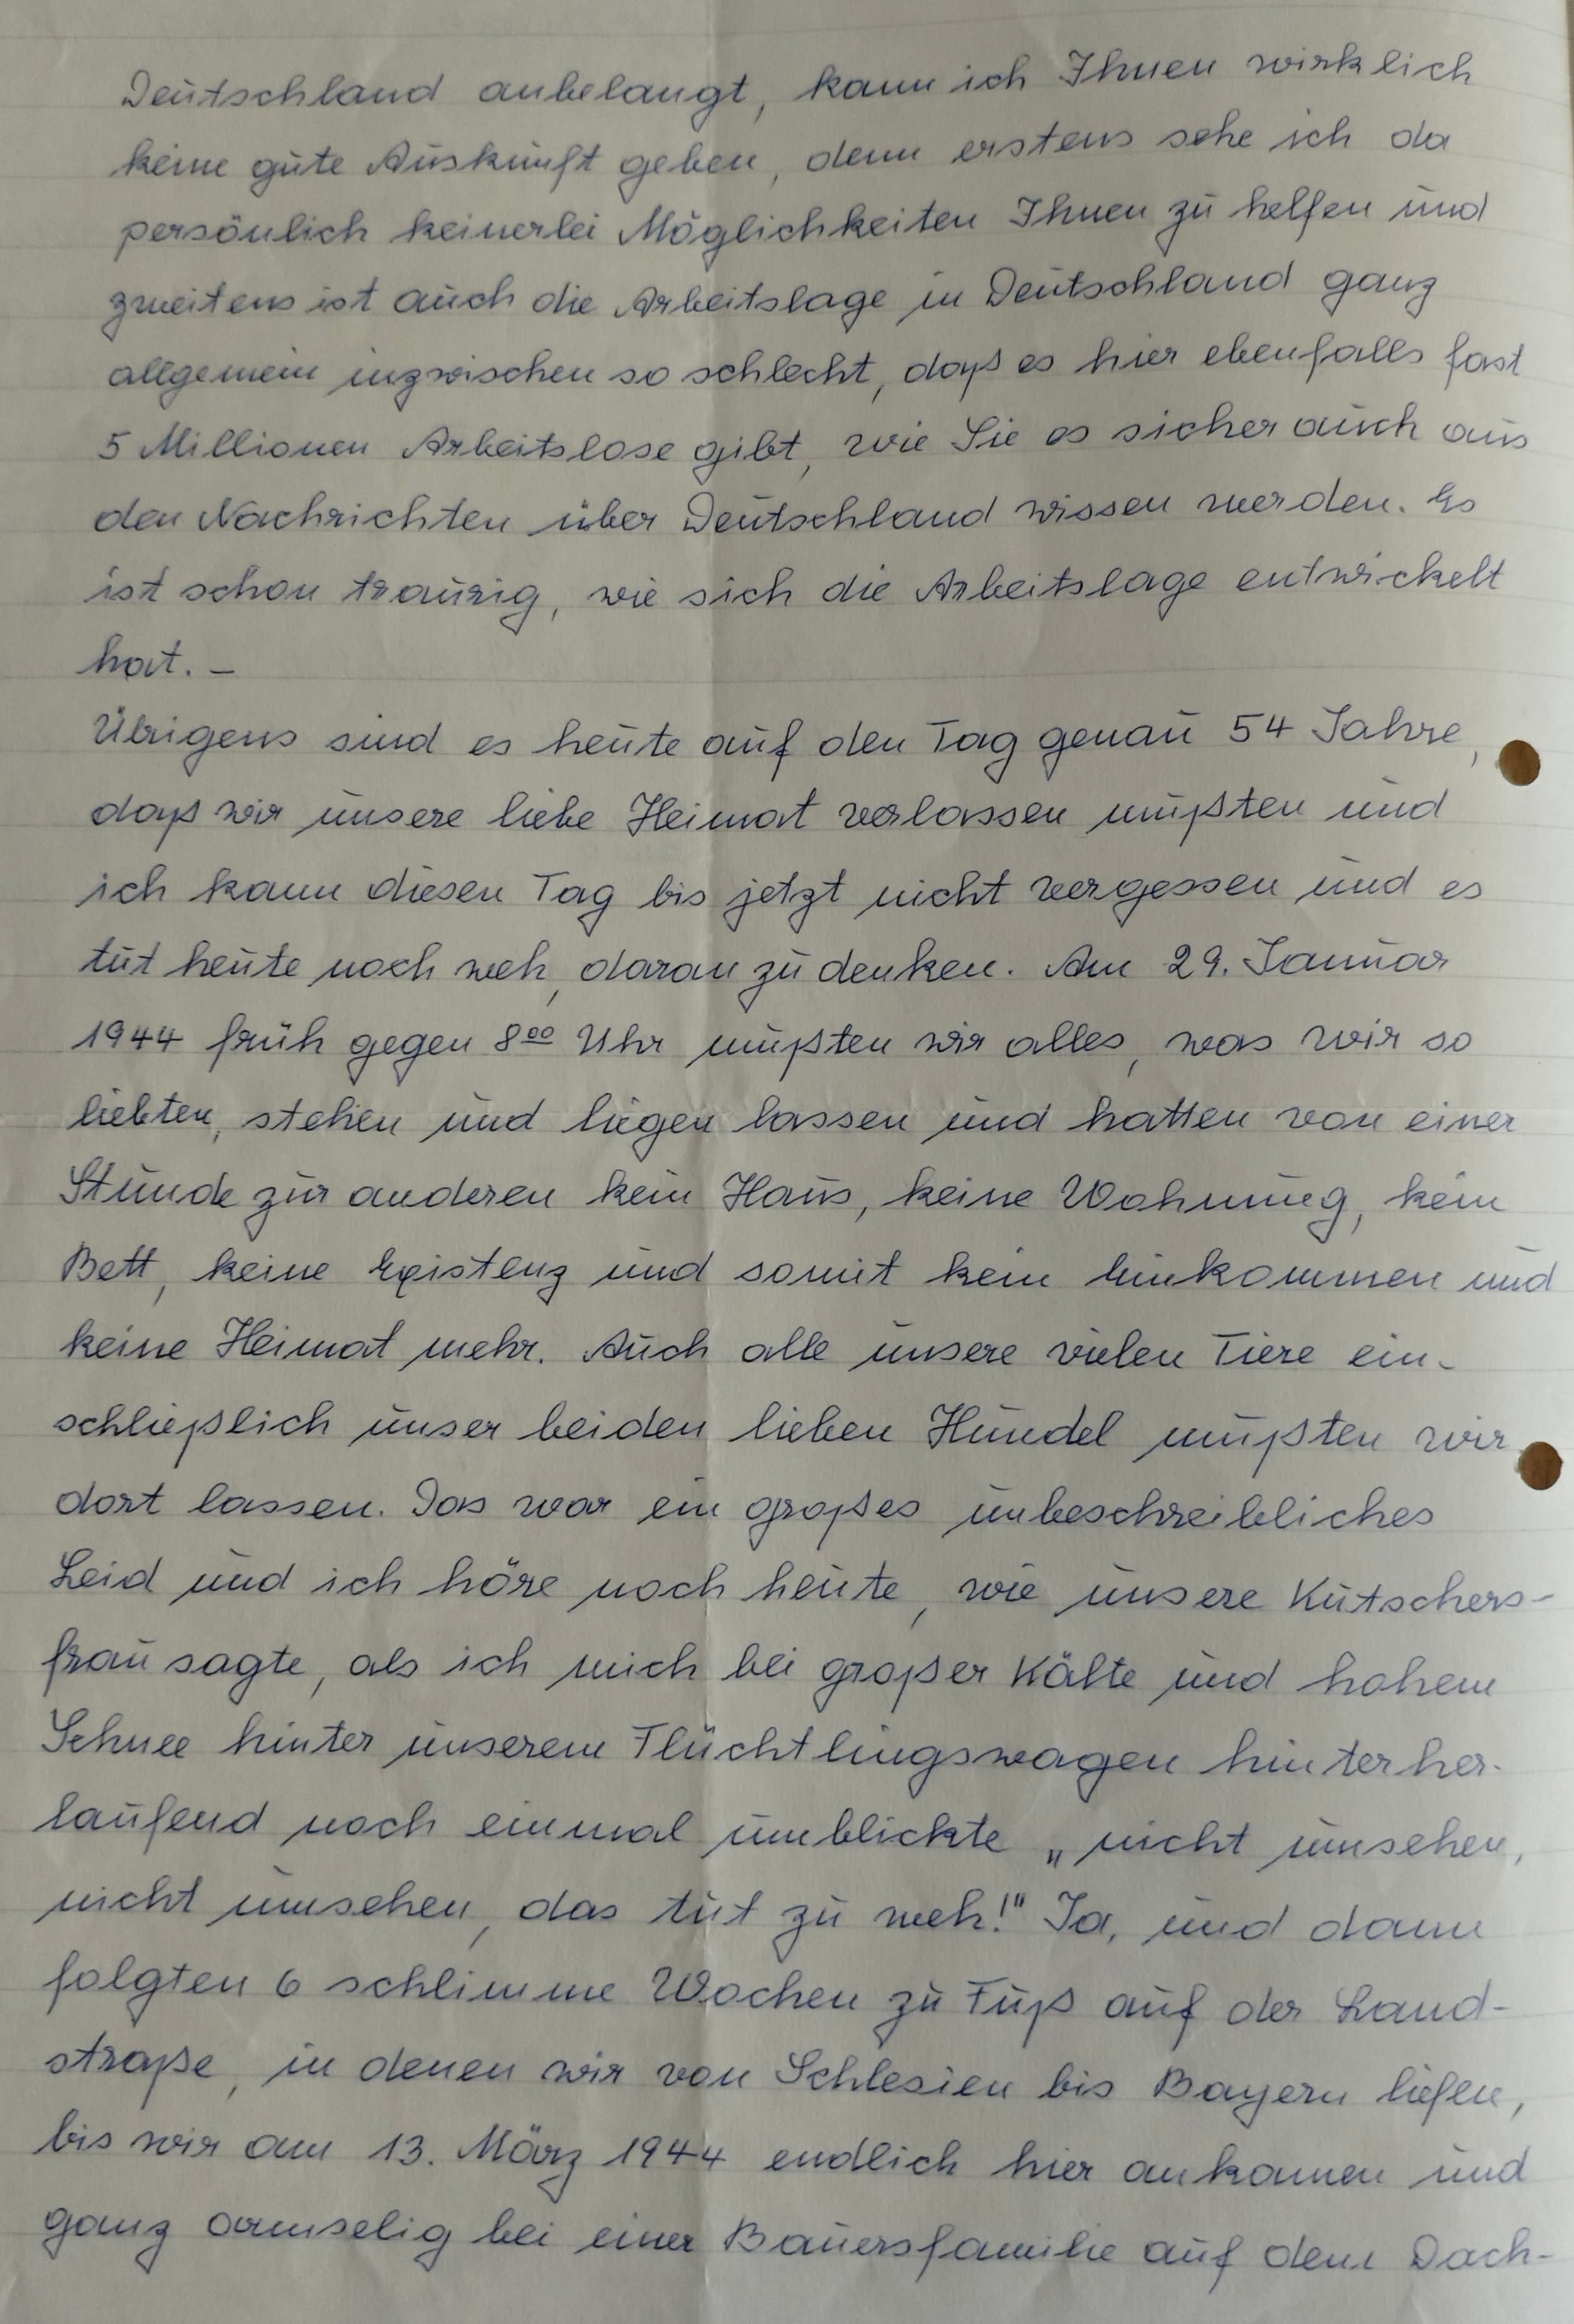 Deutschland anbelangt, kann ich Ihnen wirklich
keine gute Auskunft geben, denn erstens sehe ich da
persönlich keinerlei Möglichkeiten Ihnen zu helfen und
zweitens ist auch die Arbeitslage in Deutschland ganz
allgemein inzwischen so schlecht, daß es hier ebenfalls fast
5 Millionen Arbeitslose gibt, wie Sie es sicher auch aus
den Nachrichten über Deutschland wissen werden. Es
ist schon traurig, wie sich die Arbeitslage entwickelt
hat. –
Übrigens sind es heute auf den Tag genau 54 Jahre,
daß wir unsere liebe Heimat verlassen mußten und
ich kann diesen Tag bis jetzt nicht vergessen und es
tut heute noch weh, daran zu denken. Am 29. Januar
1944 früh gegen 8⁰⁰ Uhr mußten wir alles, was wir so
liebten, stehen und liegen lassen und hatten von einer
Stunde zur anderen kein Haus, keine Wohnung, kein
Bett, keine Existenz und somit kein Einkommen und
keine Heimat mehr. Auch alle unsere vielen Tiere ein-
schließlich unser beiden lieben Hundel mußten wir
dort lassen. Das war ein großes unbeschreibliches
Leid und ich höre noch heute, wie unsere Kutschers-
frau sagte, als ich mich bei großer Kälte und hohem
Schnee hinter unserem Flüchtlingswagen hinterher-
laufend noch einmal umblickte „nicht umsehen,
nicht umsehen, das tut zu weh!" Ja, und dann
folgten 6 schlimme Wochen zu Fuß auf der Land-
straße, in denen wir von Schlesien bis Bayern liefen,
bis wir am 13. März 1944 endlich hier ankamen und
ganz armselig bei einer Bauersfamilie auf dem Dach-